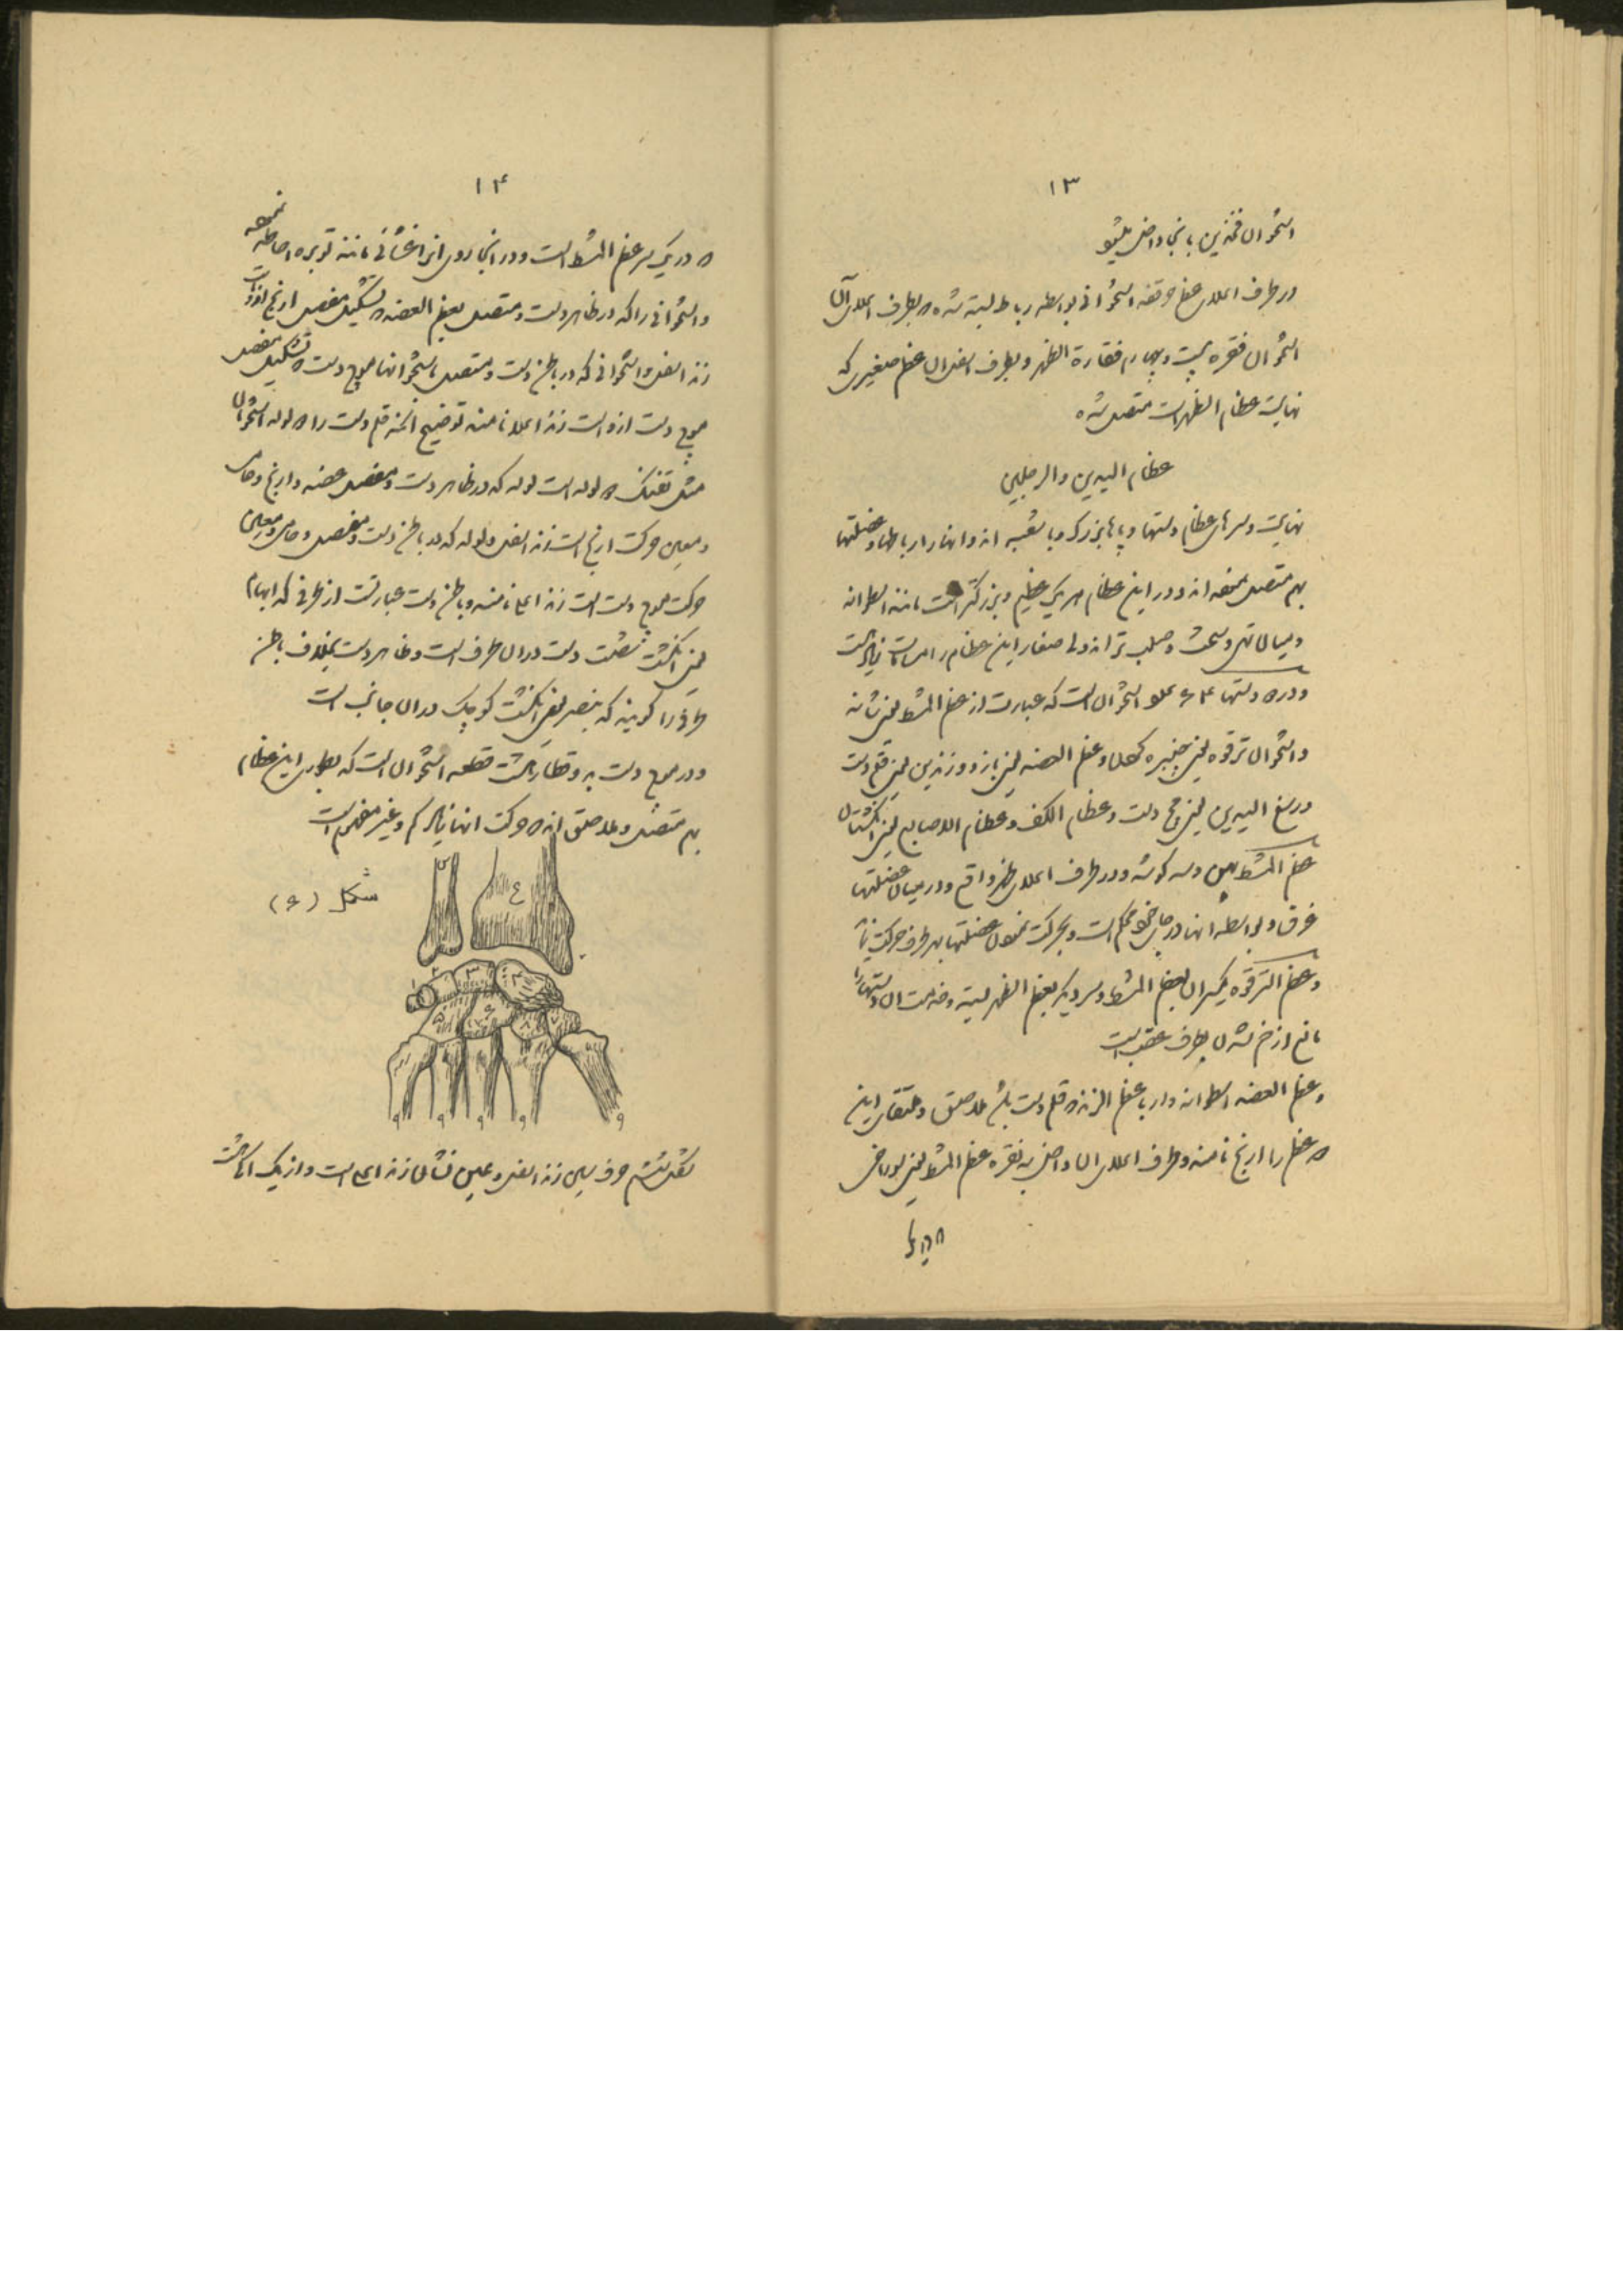 ۱۳
استخوان فخذین با نجا داخل میشود
در طرف اعلای عظم حرقفه استخوانی بواسطه رباط بسته شده بطرف اعلای آن
استخوان فقره بیست و چهارم فقارة الظهر و بطرف اسفل ان عظم صغیری که
نهایت عظام الظهر است متصل شده
عظام الیدین والرجلین
نهایت و سرهای عظام دستها و پاها بزرک و با شعبه اند و انها را رباطها و عضلتها
بهم متصل نموده اند و در این عظام هر یک عظیم و بزرکتر است مانند اسطوانه
و میان تهی و سخت و صلب تر اند ولی صغار این عظام را مسامات زیاد است
و در دستها ۶۴ عدد استخوان است که عبارت از عظم المشط یعنی شانه
و استخوان ترقوه یعنی چنبره کردن و عظم العضد یعنی بازو و زندین یعنی قلم دست
و رسغ الیدین یعنی مچ دست و عظام الکف و عظام الاصابع یعنی انکشتان
عظم المشط پهن و سه کوشه و در طرف اعلای ظهر واقع و در میان عضلتها
غرق و بواسطه انها در جای خود محکم است و بحرکت نمودن عضلتها بهر طرف حرکت نماید
و عظم الترقوه یکسر ان بعظم المشط و سر دیکر بعظم الظهر بسته و خدمت ان دستها را
مانع از خم شدن بطرف عقب است
و عظم العضد اسطوانه وار با عظم الزند و قلم دست باشد ملاصق و ملتقای این
دو عظم را ارنج نامند و طرف اعلای ان داخل به نقره عظم المشط یعنی سوراخی
۱۴
که در یک سر عظم المشط است و در انجا روی انرا غشائی مانند توبره احاطه نموده
و استخوانی را که در ظاهر دست و متصل بعظم العضد و تشکیل مفصل ارنج از اوست
زند اسفل و استخوانی که در باطن دست و متصل باستخوانهای مچ دست و تشکیل مفصل
مچ دست از اوست زند اعلا نامند توضیح انکه قلم دست را دو لوله استخوان
مثل تفنک دو لوله است لوله که در ظاهر دست و مفصل عضد و ارنج و حامی
و معین حرکت ارنج است زند اسفل و لوله که در باطن دست و مفصل و حامی و معین
حرکت مچ دست است زند اعلی نامند و باطن دست عبارتست از طرفی که ابهام
یعنی انکشت شصت دست در ان طرف است و ظاهر دست بخلاف باطن
طرفی را کویند که خنصر یعنی انکشت کوچک در ان جانب است
و در مچ دست به دو قطار هشت قطعه استخوان است که بطور این عظام
بهم متصل و ملاصق اند که حرکت انها بسیار کم و غیر مفهوم است
شکل (۶)
ع
س
۱
۲
۳
۴
۵
۶
۷
۸
۹ ۹ ۹ ۹ ۹
شکل ششم حرف سین زند اسفل و عین نشان زند اعلی است و از یک الی هشت